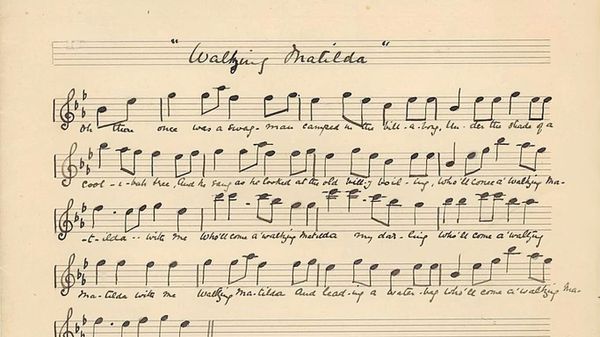 "Waltzing Matilda"
Oh there once was a swag-man camped in the bill-a-bong, Un-der the shade of a
cool-i-bah tree, And he sang as he looked at the old billy boil-ing, who'll come a' waltzing Ma-
-t-ilda.. with me Who'll come a' waltzing Matilda my dar-ling Who'll come a' waltzing
Ma-tilda with me Waltzing Ma-tilda and lead-ing a water-bag who'll come a' waltzing Ma-